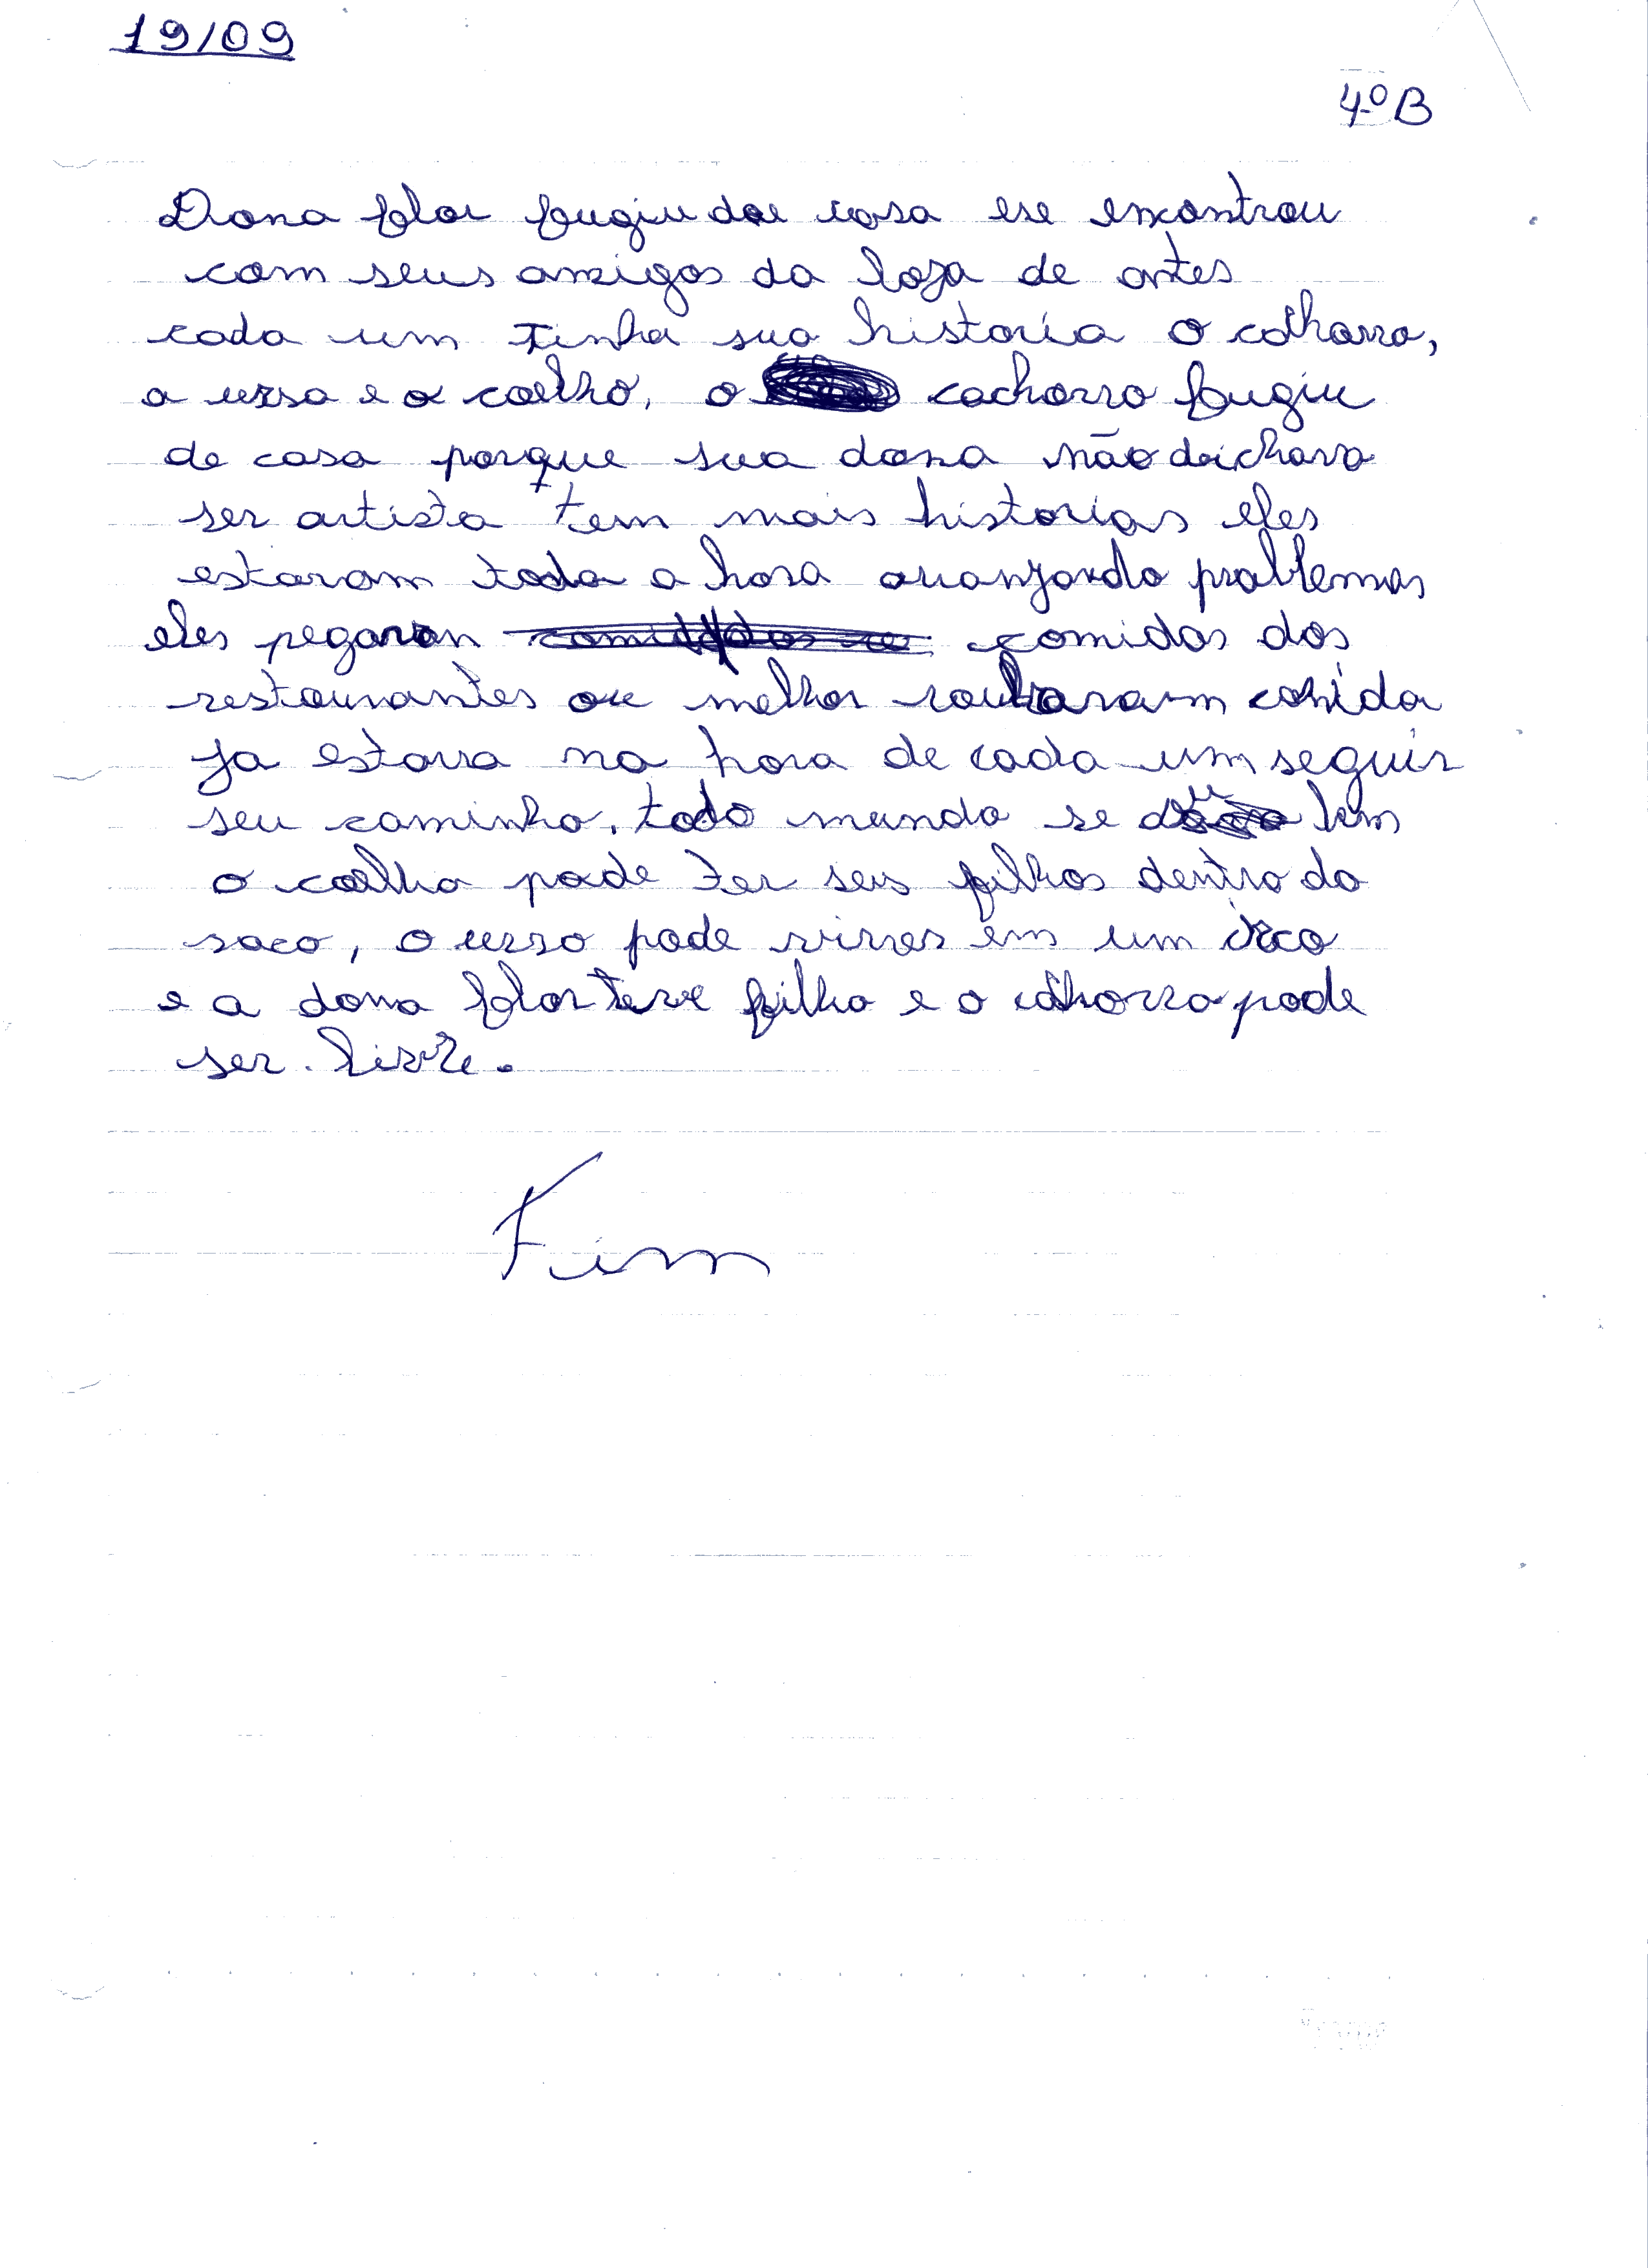 19/09
4º B
Dona flor fugiu de casa ese encontrou
com seus amigos da loja de antes
cada um tinha sua historia o cachorro,
a ursa e o coelho, o cachorro fugiu
de casa porque sua dona não deichava
ser artista tem mais historias eles
estavam toda a hora arranjando problemas
eles pegavan comidas dos
restaurantes ou melhor roubavam comida
ja estava na hora de cada um seguir
seu caminho, todo mundo se deu bem
o coelho pode ter seus filhos dentro do
saco, o urso pode viver em um circo
e a dona flor teve filho e o cachorro pode
ser livre.
Fim